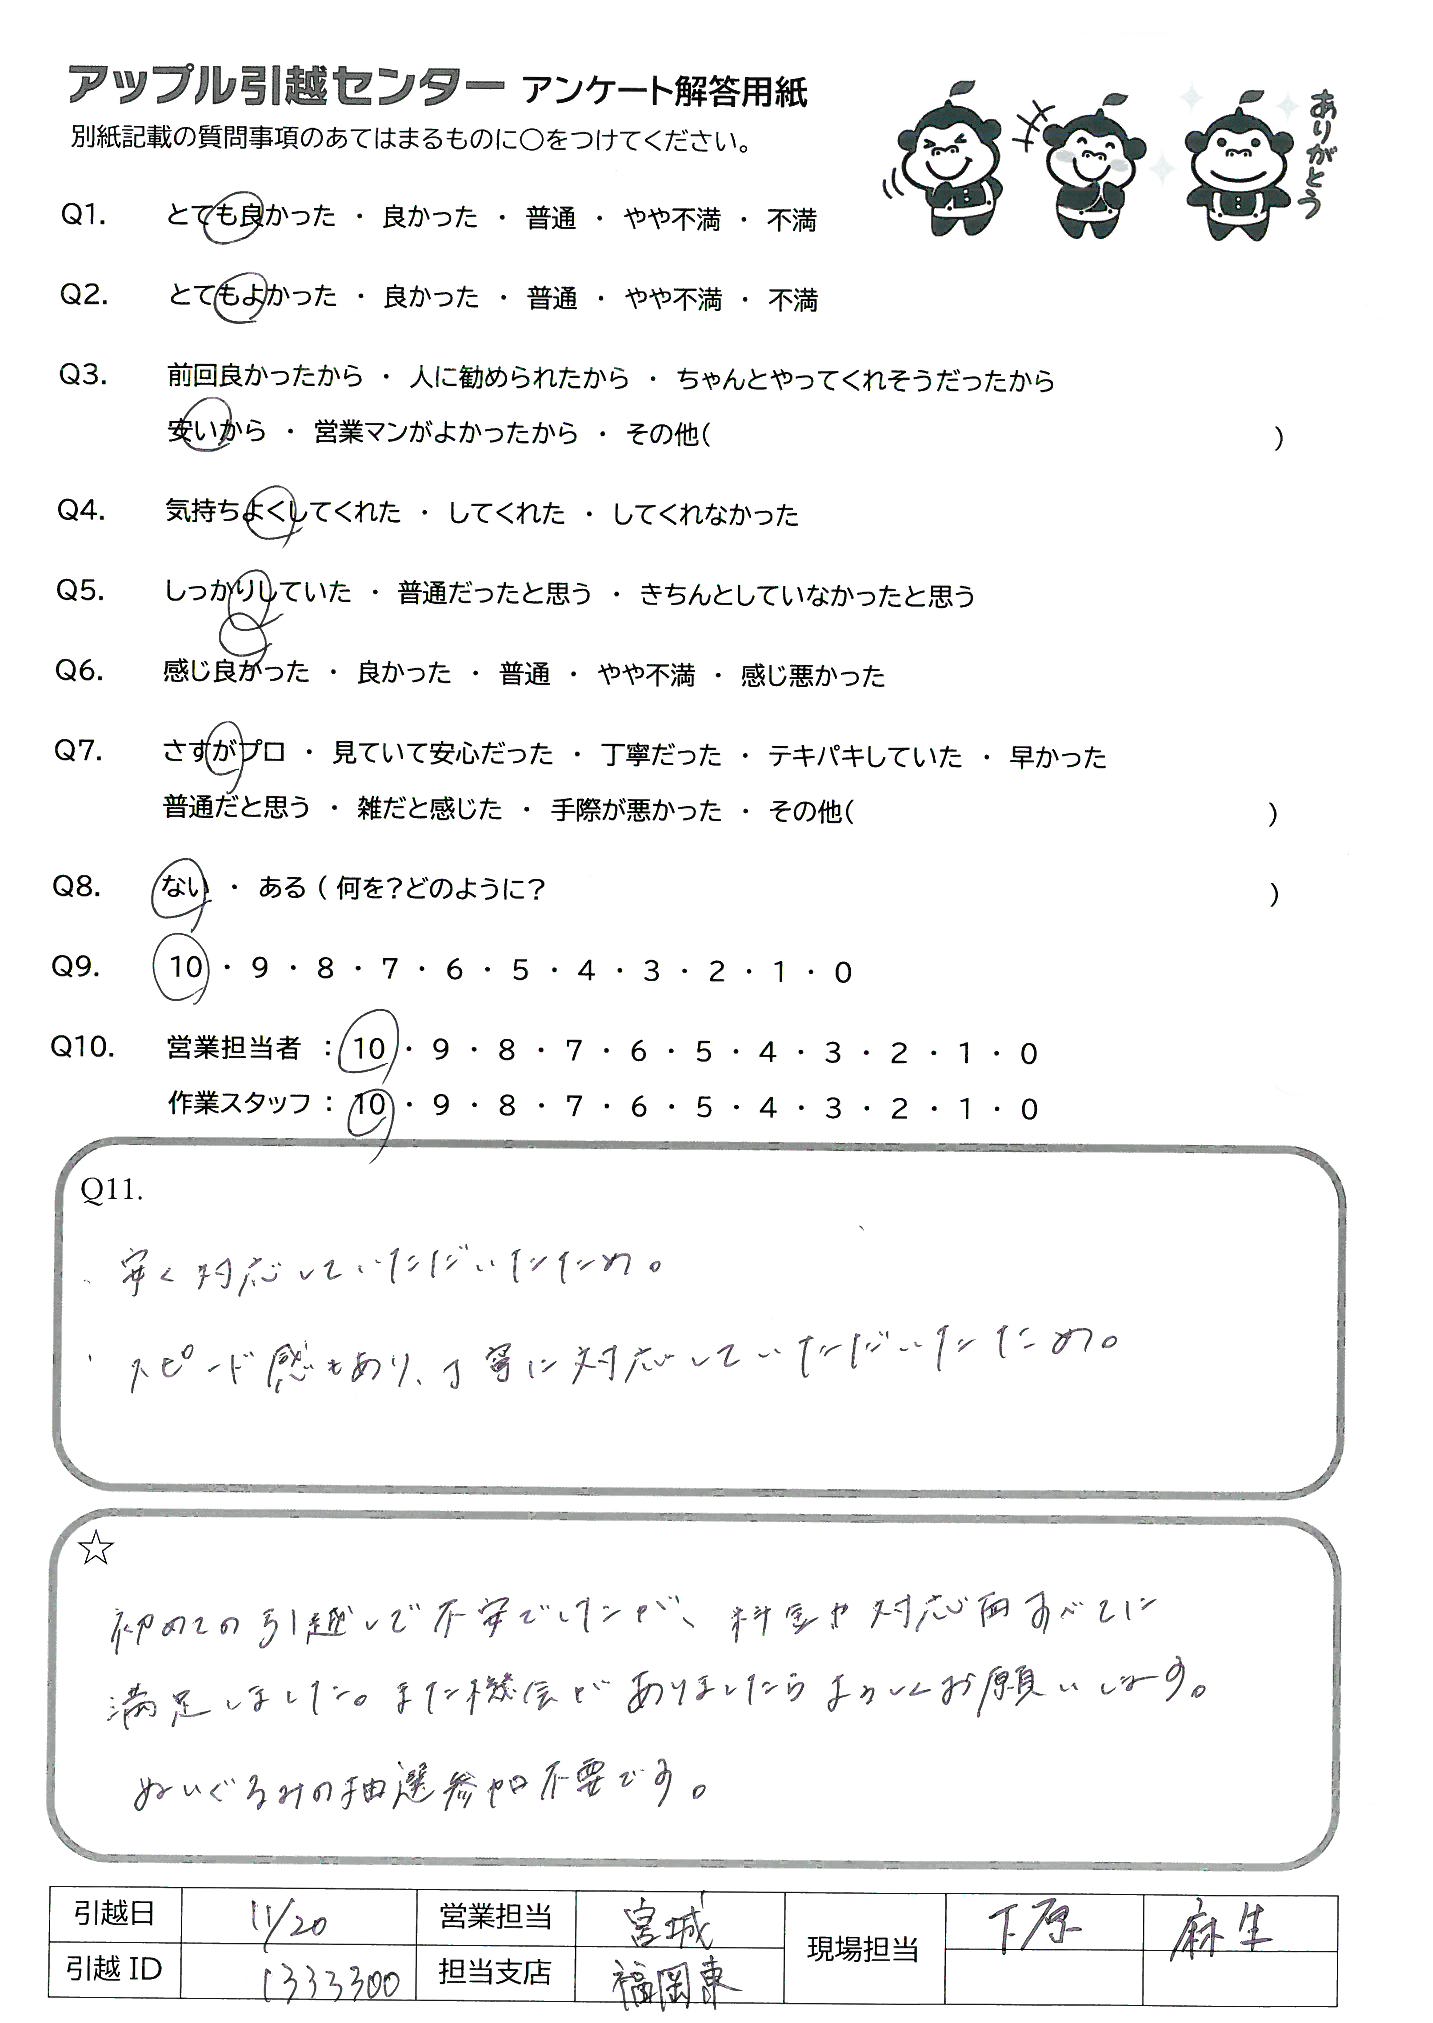 アップル引越センター アンケート解答用紙
別紙記載の質問事項のあてはまるものに○をつけてください。
ありがとう
Q1. とても良かった ・ 良かった ・ 普通 ・ やや不満 ・ 不満
Q2. とてもよかった ・ 良かった ・ 普通 ・ やや不満 ・ 不満
Q3. 前回良かったから ・ 人に勧められたから ・ ちゃんとやってくれそうだったから
安いから ・ 営業マンがよかったから ・ その他( )
Q4. 気持ちよくしてくれた ・ してくれた ・ してくれなかった
Q5. しっかりしていた ・ 普通だったと思う ・ きちんとしていなかったと思う
Q6. 感じ良かった ・ 良かった ・ 普通 ・ やや不満 ・ 感じ悪かった
Q7. さすがプロ ・ 見ていて安心だった ・ 丁寧だった ・ テキパキしていた ・ 早かった
普通だと思う ・ 雑だと感じた ・ 手際が悪かった ・ その他( )
Q8. ない ・ ある ( 何を?どのように? )
Q9. 10 ・ 9 ・ 8 ・ 7 ・ 6 ・ 5 ・ 4 ・ 3 ・ 2 ・ 1 ・ 0
Q10. 営業担当者 : 10 ・ 9 ・ 8 ・ 7 ・ 6 ・ 5 ・ 4 ・ 3 ・ 2 ・ 1 ・ 0
作業スタッフ : 10 ・ 9 ・ 8 ・ 7 ・ 6 ・ 5 ・ 4 ・ 3 ・ 2 ・ 1 ・ 0
Q11.
・安く対応していただいたため。
・スピード感もあり、丁寧に対応していただいたため。
☆
初めての引越しで不安でしたが、料金や対応面すべてに
満足しました。また機会がありましたらよろしくお願いします。
ぬいぐるみの抽選参加不要です。
引越日 11/20 営業担当 宮城 現場担当 下原 麻生
引越 ID 1333300 担当支店 福岡東